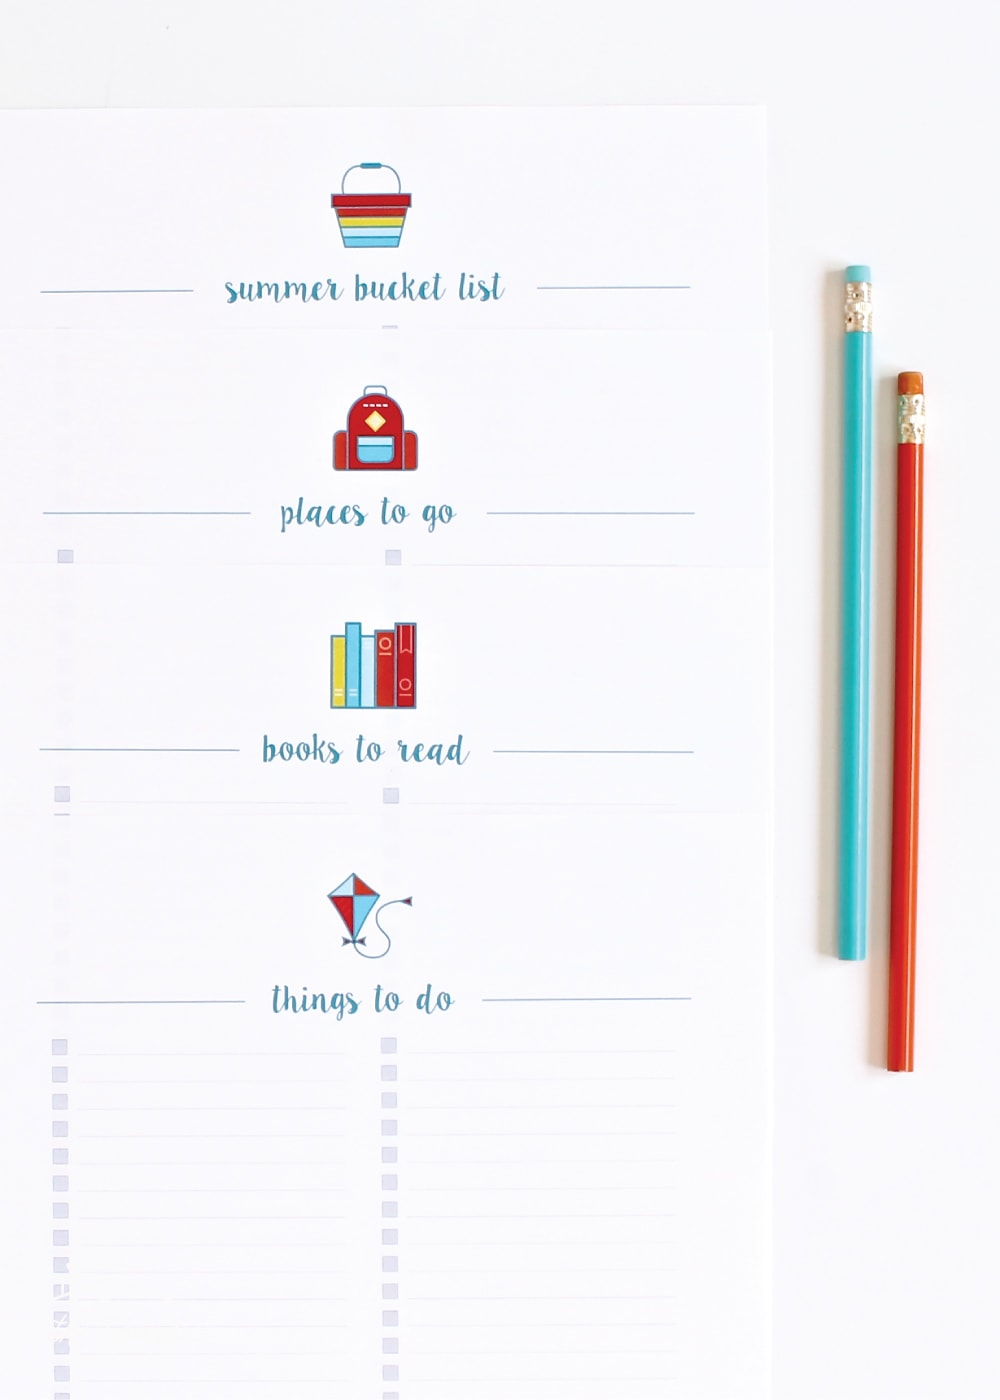 summer bucket list
places to go
books to read
things to do